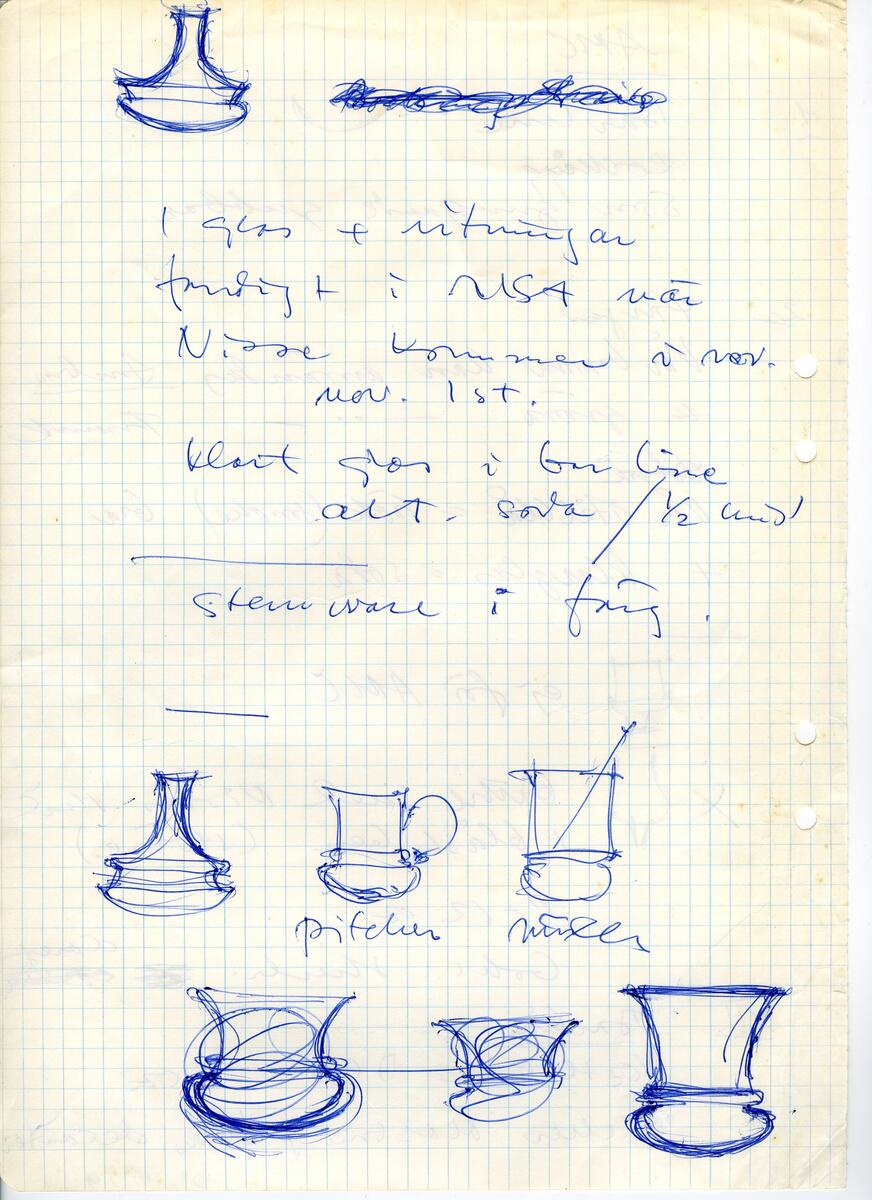 1 glas + ritningar
färdigt i USA när
Nisse kommer i nov.
nov. 1st.
klart glas i bar line
alt. soda 1/2
stemware i färg.
pitcher mixer